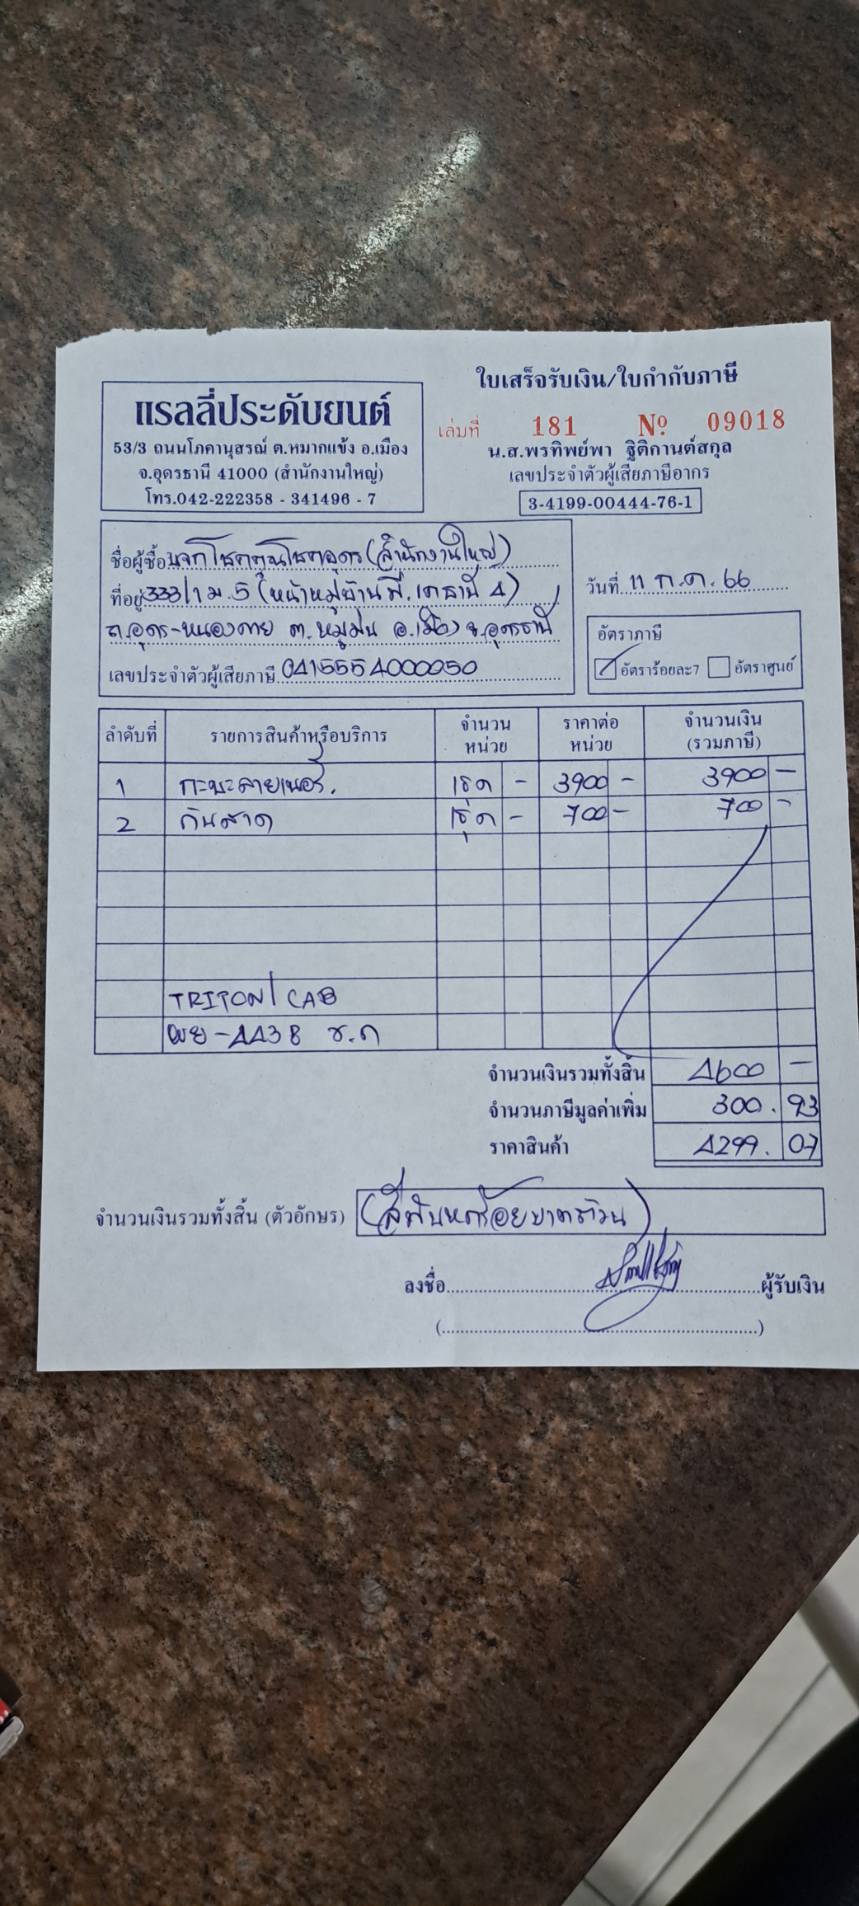 ใบเสร็จรับเงิน/ใบกำกับภาษี
แรลลี่ประดับยนต์
53/3 ถนนโภคานุสรณ์ ต.หมากแข้ง อ.เมือง
จ.อุดรธานี 41000 (สำนักงานใหญ่)
โทร.042-222358 - 341496 - 7
เล่มที่ 181 Nº 09018
น.ส.พรทิพย์พา ฐิติกานต์สกุล
เลขประจำตัวผู้เสียภาษีอากร
3-4199-00444-76-1
ชื่อผู้ซื้อ หจก โชคคูณโชคอุดร (สำนักงานใหญ่)
ที่อยู่ 333/1 ม.5 (หน้าหมู่บ้าน พี.เคธานี 4)
ถ.อุดร-หนองคาย ต.หมูม่น อ.เมือง จ.อุดรธานี
เลขประจำตัวผู้เสียภาษี 0415554000050
วันที่ 11 ก.ค. 66
อัตราภาษี
อัตราร้อยละ7 อัตราศูนย์
ลำดับที่ รายการสินค้าหรือบริการ จำนวนหน่วย ราคาต่อหน่วย จำนวนเงิน (รวมภาษี)
1 กะบะลายเนอร์. 1ชุด - 3900 - 3900 -
2 กันสาด 1ชุด - 700 - 700 -
TRITON/CAB
ผย-4438 ช.ก
จำนวนเงินรวมทั้งสิ้น 4600 -
จำนวนภาษีมูลค่าเพิ่ม 300. 93
ราคาสินค้า 4299. 07
จำนวนเงินรวมทั้งสิ้น (ตัวอักษร) (สี่พันหกร้อยบาทถ้วน)
ลงชื่อ ผู้รับเงิน